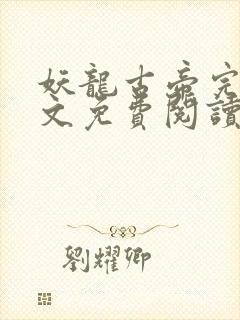 妖龍古帝完
文免費閱讀
劉耀卿